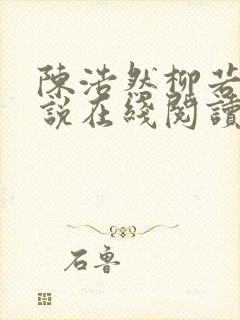 陳浩然柳若
說在綫閱讀
石魯